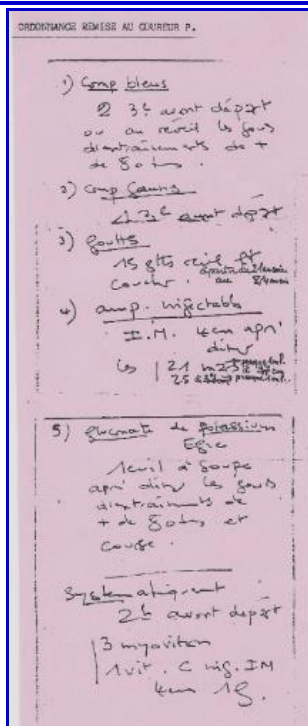 ORDONNANCE REMISE AU COUREUR P.
1) Comp bleus
2 3h avant départ
ou au réveil les jours
d'entraînements de +
de 80 kms.
2) Comp jaunes
1 3h avant départ
3) gouttes
15 gttes réveil et
coucher.
4) amp. injectables
I.M. 4cm apr'
dîner
les 21
25
5) gluconate de potassium
Egic
1 cuil à soupe
apr' dîner les jours
d'entraînements de
+ de 80 kms et
course.
Systématiquement
2h avant départ
3 myoviton
1 vit. C inj. IM
4cm 1g.